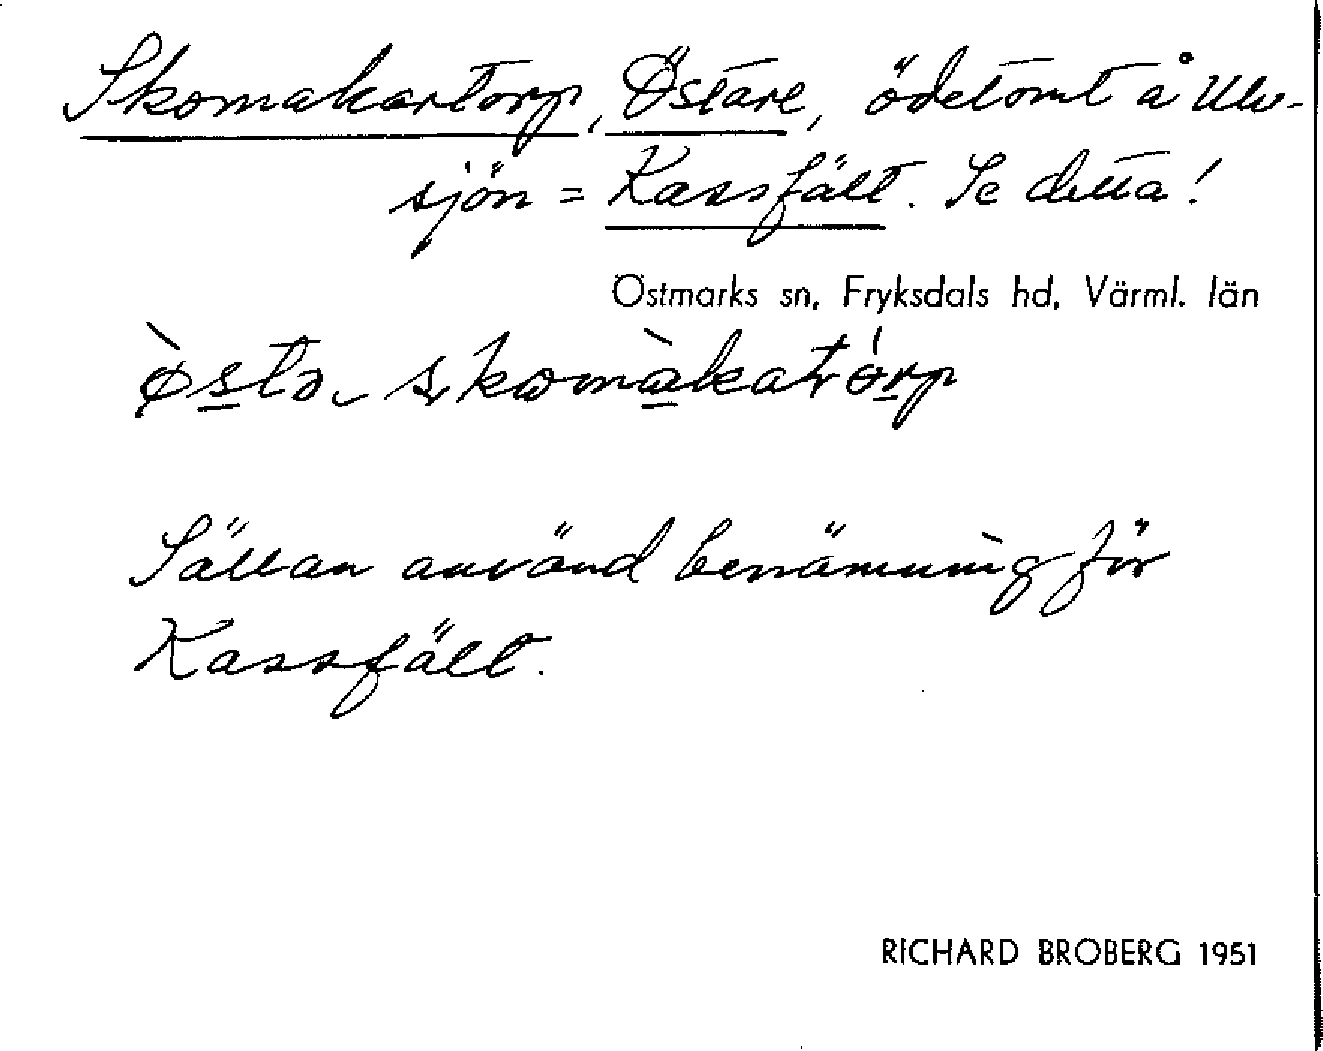 Skomakartorp, Östare, ödetomt å Ulv-
sjön = Kassfält. Se detta!
Östmarks sn, Fryksdals hd, Värml. län
Sällan använd benämning för
Kassfält.
RICHARD BROBERG 1951